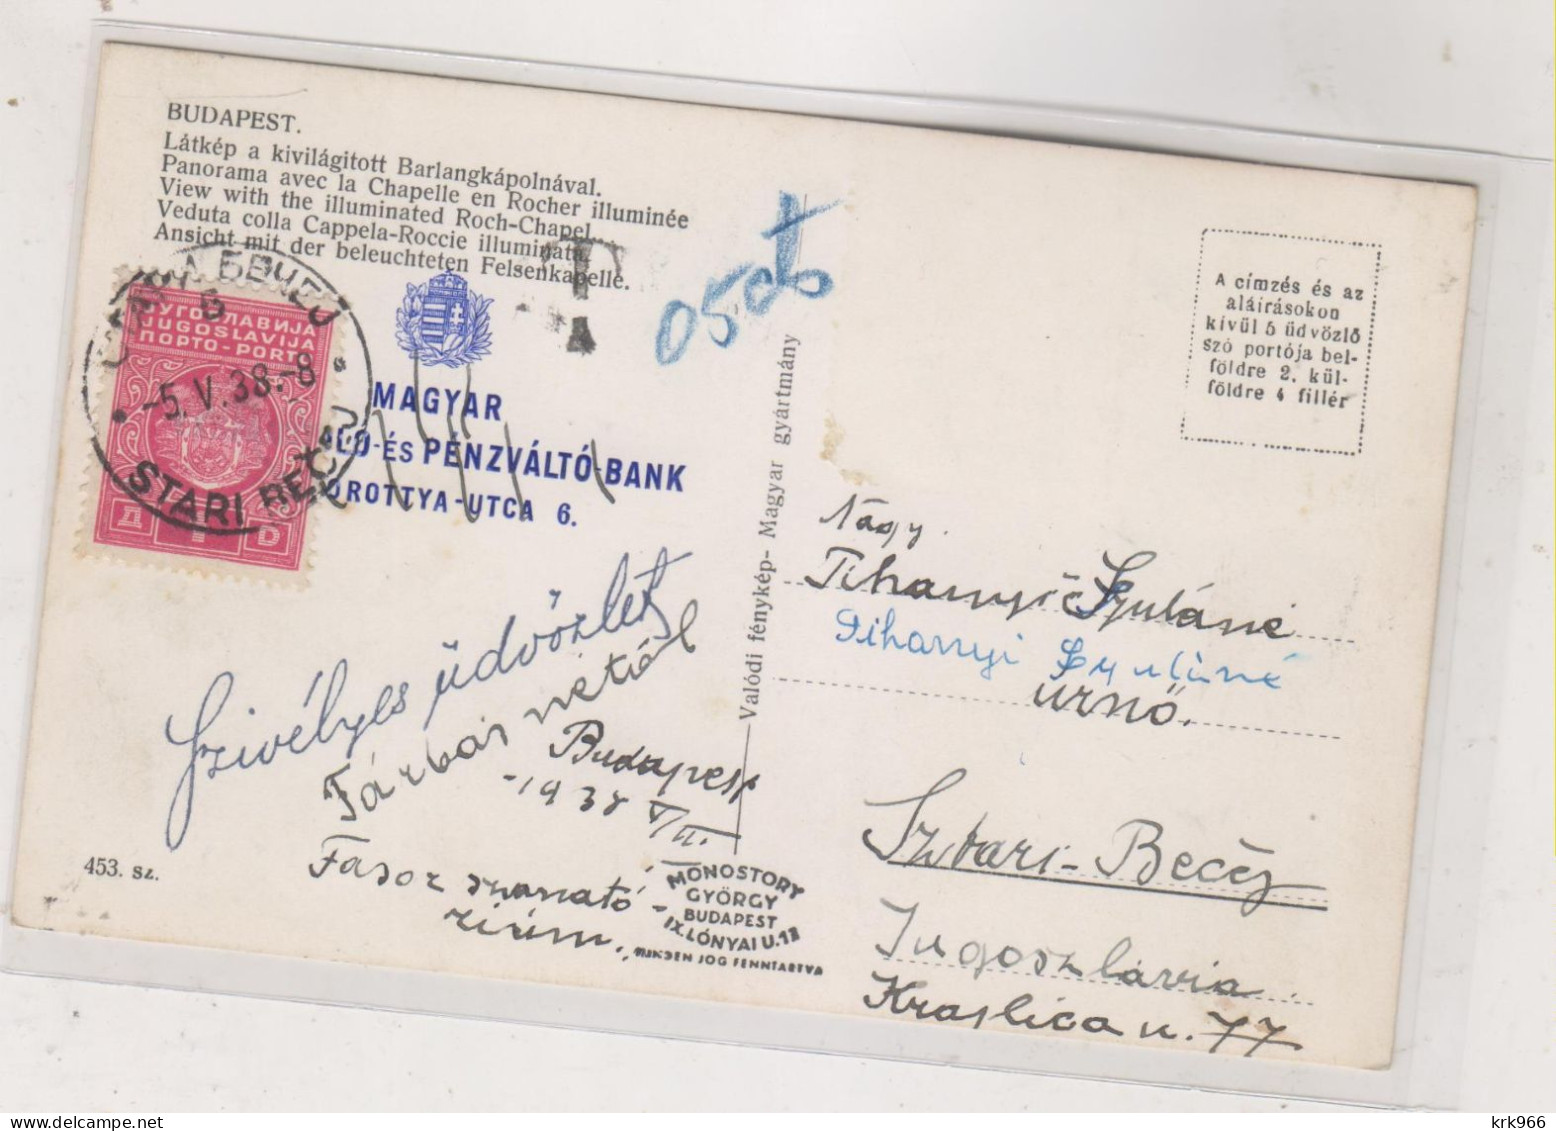 BUDAPEST.
Látkép a kivilágitott Barlangkápolnával.
Panorama avec la Chapelle en Rocher illuminée
View with the illuminated Roch-Chapel
Veduta colla Cappela-Roccie illuminata.
Ansicht mit der beleuchteten Felsenkapelle.
T
05 ct
ЈУГОСЛАВИЈА
JUGOSLAVIJA
ПОРТО-PORTO
-5.V.38.-8
STARI BEČEJ
MAGYAR
ÉS PÉNZVÁLTÓ-BANK
OROTTYA-UTCA 6.
A címzés és az
aláirásokon
kívül 5 üdvözlő
szó portója bel-
földre 2. kül-
földre 4 fillér
Valódi fénykép- Magyar gyártmány
Nagy
Tihanyi Gyuláné
Tihanyi Gyuláné
úrnő.
Sztari-Becej
Jugoszlávia
Krajlica u. 77
Szivélyes üdvözlet
Budapest
-1938 V/II.
453. sz.
MONOSTORY
GYÖRGY
BUDAPEST
IX. LÓNYAI U. 13
MINDEN JOG FENNTARTVA
krk966